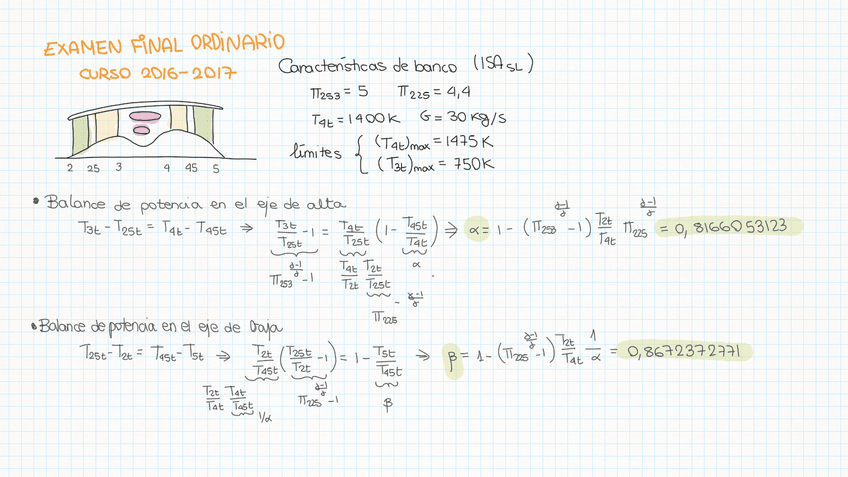 EXAMEN FINAL ORDINARIO
CURSO 2016-2017
Características de banco (ISA SL)
π253 = 5 π225 = 4,4
T4t = 1400 K G = 30 kg/s
límites { (T4t)max = 1475 K
(T3t)max = 750 K
2 25 3 4 45 5
• Balance de potencia en el eje de alta
T3t - T25t = T4t - T45t ⇒ T3t/T25t - 1 = T4t/T25t (1 - T45t/T4t) ⇒ α = 1 - (π253^(γ-1/γ) - 1) T2t/T4t π225^(γ-1/γ) = 0,8166053123
π253^(γ-1/γ) - 1 T4t/T2t T2t/T25t α
π225^(-γ-1/γ)
• Balance de potencia en el eje de baja
T25t - T2t = T45t - T5t ⇒ T2t/T45t (T25t/T2t - 1) = 1 - T5t/T45t ⇒ β = 1 - (π225^(γ-1/γ) - 1) T2t/T4t 1/α = 0,8672372771
T2t/T4t T4t/T45t π225^(γ-1/γ) - 1 β
1/α